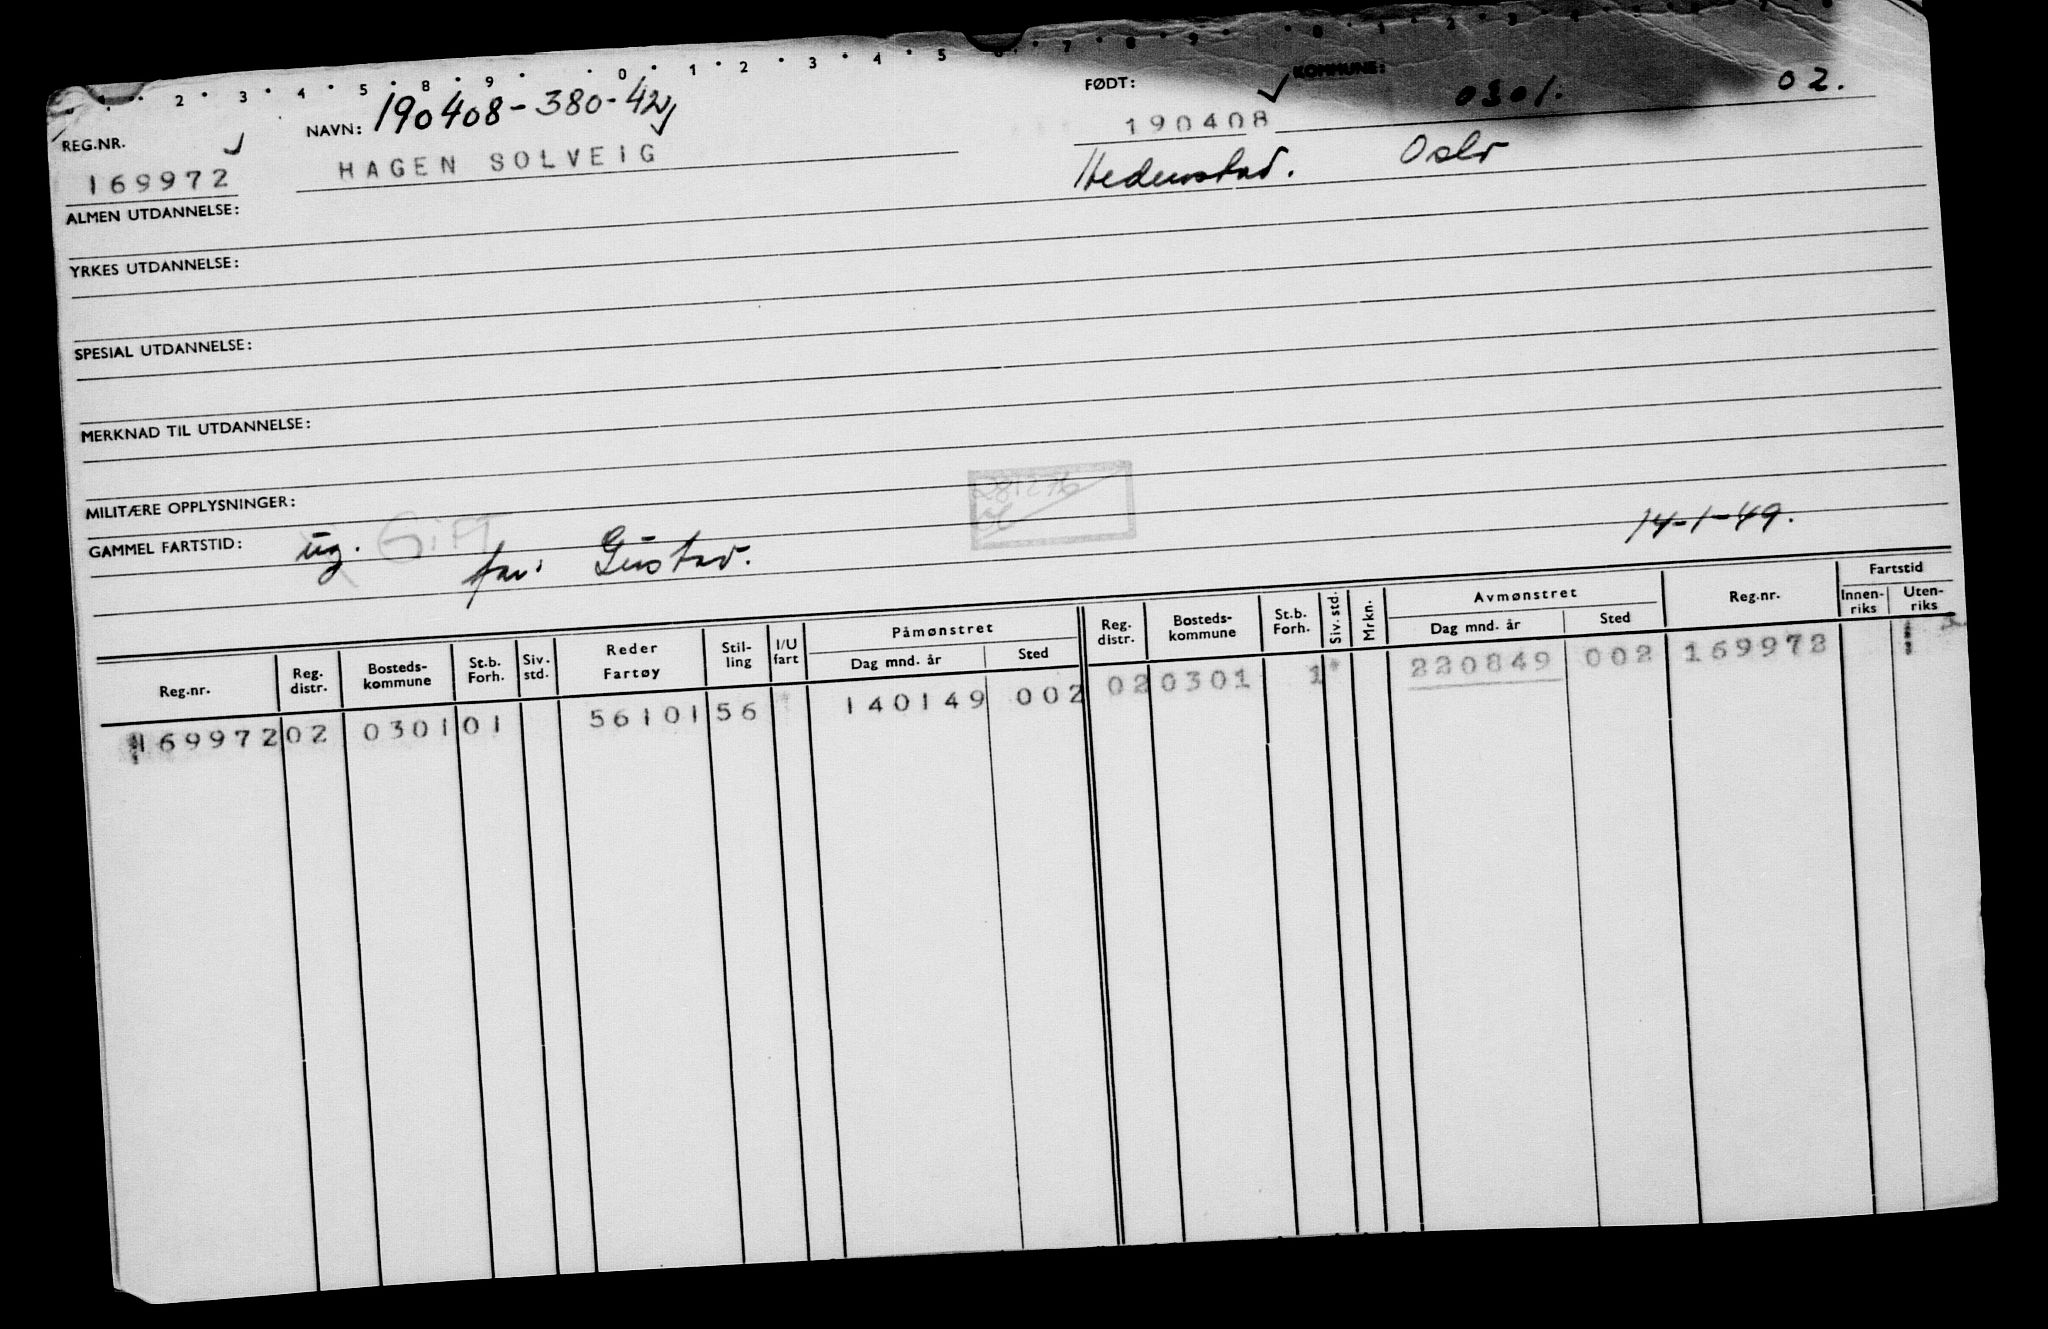 1 2 3 4 5 8 9 0 1 2 3 4 5 6 7 8 9 0 1 2 3 4
REG.NR. NAVN: 190408-380-42 FØDT: KOMMUNE: 0301. 02.
169972 HAGEN SOLVEIG 190408
Hedenstad. Oslo
ALMEN UTDANNELSE:
YRKES UTDANNELSE:
SPESIAL UTDANNELSE:
MERKNAD TIL UTDANNELSE:
MILITÆRE OPPLYSNINGER:
GAMMEL FARTSTID: ug. Gift far: Gustav. 14-1-49.
Reg.nr. Reg. distr. Bosteds-kommune St.b. Forh. Siv. std. Reder Fartøy Stil-ling I/U fart Påmønstret Dag mnd. år Sted Reg. distr. Bosteds-kommune St.b. Forh. Siv. std. Mrkn. Avmønstret Dag mnd. år Sted Reg.nr. Fartstid Innen-riks Uten-riks
169972 02 0301 01 56101 56 140149 002 02 0301 1 220849 002 169972